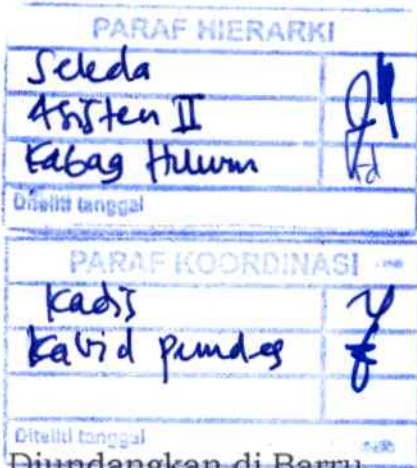 PARAF HIERARKI
Sekda
Asisten II
Kabag Hukum
Diteliti tanggal
PARAF KOORDINASI
Kadis
Kabid pemdes
Diteliti tanggal
Diundangkan di Barru